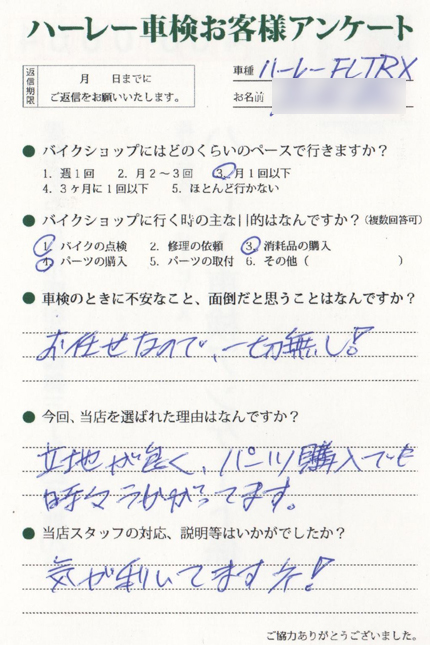 ハーレー車検お客様アンケート
返信期限
月　　日までに
ご返信をお願いいたします。
車種 ハーレーFLTRX
お名前
● バイクショップにはどのくらいのペースで行きますか？
1. 週1回　2. 月2～3回　3. 月1回以下
4. 3ヶ月に1回以下　5. ほとんど行かない
● バイクショップに行く時の主な目的はなんですか？（複数回答可）
1. バイクの点検　2. 修理の依頼　3. 消耗品の購入
4. パーツの購入　5. パーツの取付　6. その他（　　　）
● 車検のときに不安なこと、面倒だと思うことはなんですか？
お任せなので、一切無し!
● 今回、当店を選ばれた理由はなんですか？
立地が良く、パーツ購入でも
時々うかがってます。
● 当店スタッフの対応、説明等はいかがでしたか？
気が利いてますネ!
ご協力ありがとうございました。